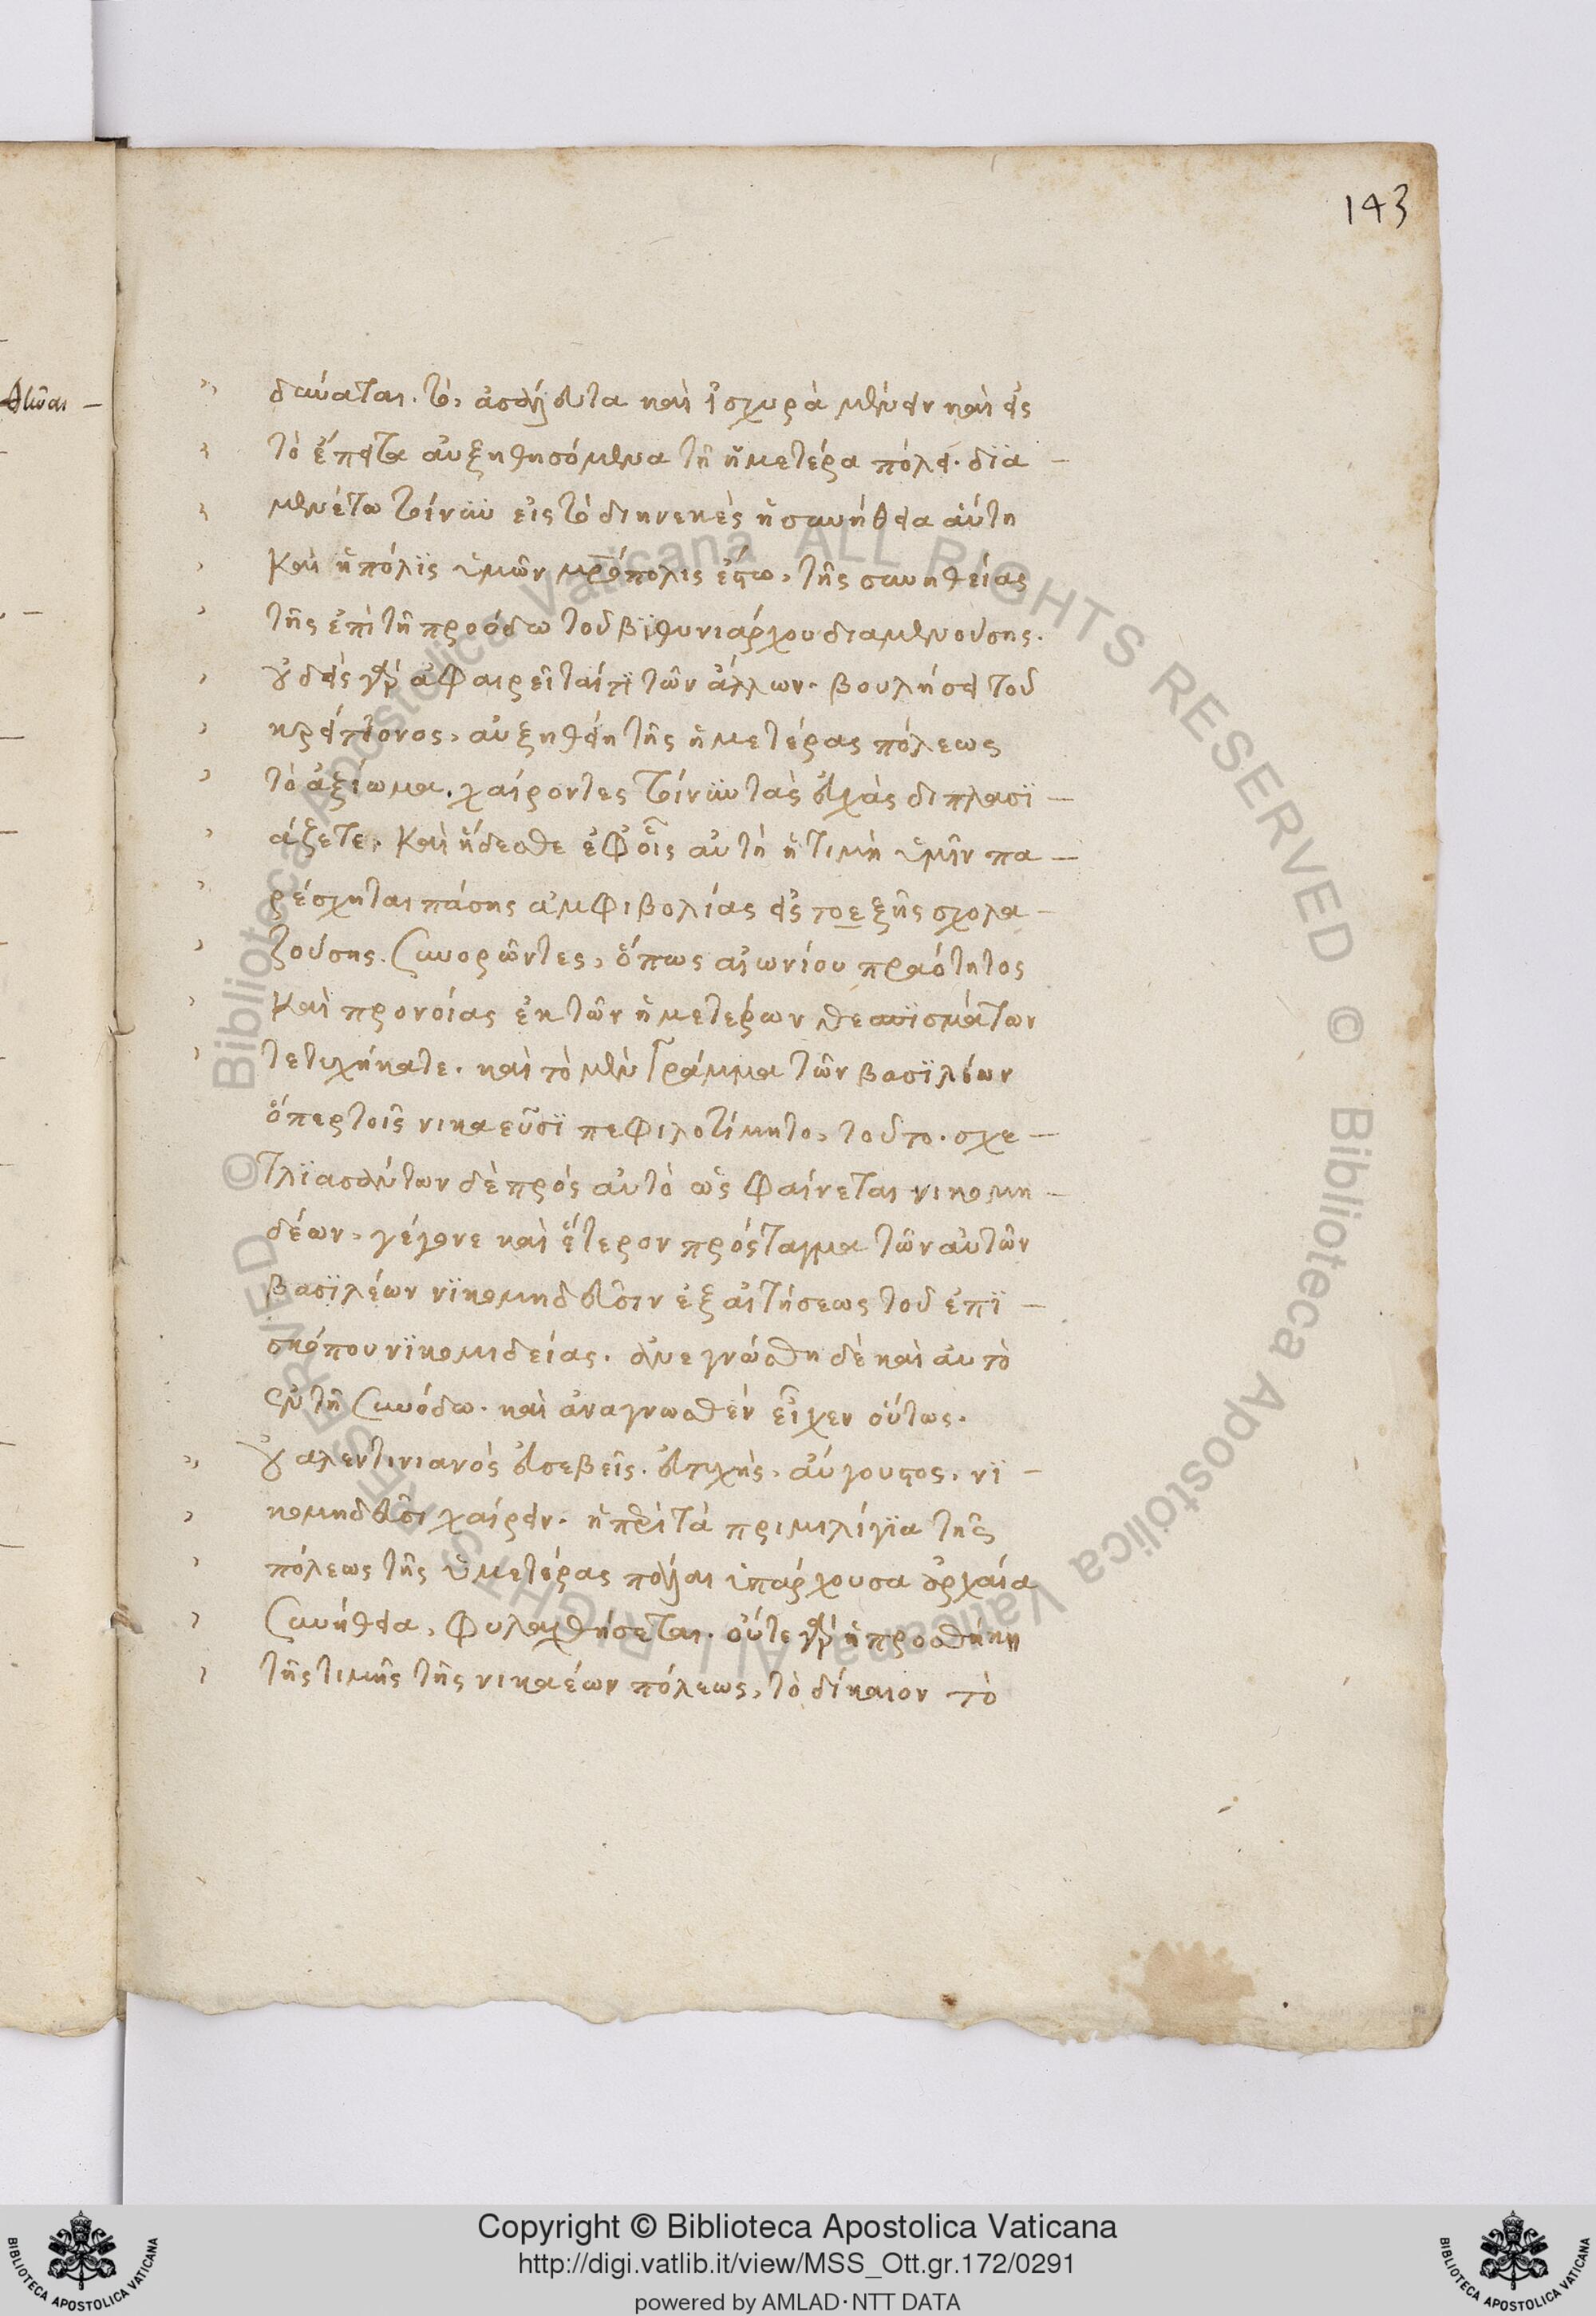 143
θῆναι –
δύναται. τὸ, ἀσάλευτα καὶ ἰσχυρὰ μένειν καὶ εἰς
τὸ ἔπειτα αὐξηθησόμενα τῇ ἡμετέρα πόλει. δϊα –
μενέτω τοίνυν εἰς τὸ διηνεκὲς ἡ συνήθεια αὕτη
Καὶ ἡ πόλϊς ὑμῶν μρόπολις ἔστω, τῆς συνηθείας
τῆς ἐπὶ τῇ προόδω τοῦ βϊθυνιάρχου διαμενούσης.
οὐδεὶς γὰρ ἀφαιρεῖταί τϊ τῶν ἄλλων. βουλήσει τοῦ
κρείττονος, αὐξηθείη τῆς ἡμετέρας πόλεως
τὸ ἀξίωμα. χαίροντες τοίνυν τὰς εὐχὰς διπλασϊ –
άζετε, Καὶ ἥδεσθε ἐφ' οἷς αὐτὴ ἡ τιμὴ ὑμῖν πα –
ρέσχηται πάσης ἀμφιβολίας εἰς το εξῆς σχολα –
ζούσης. Συνορῶντες, ὅπως αἰωνίου πραότητος
Καὶ προνοίας ἐκ τῶν ἡμετέρων θεσπϊσμάτων
τετυχήκατε. καὶ τὸ μὲν Γράμμα τῶν βασϊλέων
ὅπερ τοῖς νικαεῦσϊ πεφιλοτίμητο, τοῦτο. σχε –
τλϊασάντων δὲ πρὸς αὐτὸ ὡς φαίνεται νικομη –
δέων, γέγονε καὶ ἕτερον πρόσταγμα τῶν αὐτῶν
βασϊλέων νϊκομηδεῦσιν ἐξ αἰτήσεως τοῦ ἐπϊ –
σκόπου νϊκομιδείας. ἀνεγνώσθη δὲ καὶ αὐτὸ
ἐν τῇ Συνόδω. καὶ ἀναγνωσθὲν εἶχεν οὕτως.
Οὐαλεντινιανὸς εὐσεβεῖς. εὐτυχὴς, αὔγουστος. νϊ –
κομηδεῦσι χαίρειν. ἡ περὶ τὰ πριμιλίγϊα τῆς
πόλεως τῆς ὑμετέρας πάλαι ὑπάρχουσα ἀρχαία
Συνήθεια, φυλαχθήσεται. οὔτε γὰρ ἡ προσθήκη
τῆς τιμῆς τῆς νικαέων πόλεως, τὸ δίκαιον τὸ
© Biblioteca Apostolica Vaticana ALL RIGHTS RESERVED
Copyright © Biblioteca Apostolica Vaticana
http://digi.vatlib.it/view/MSS_Ott.gr.172/0291
powered by AMLAD·NTT DATA
BIBLIOTECA APOSTOLICA VATICANA
BIBLIOTECA APOSTOLICA VATICANA